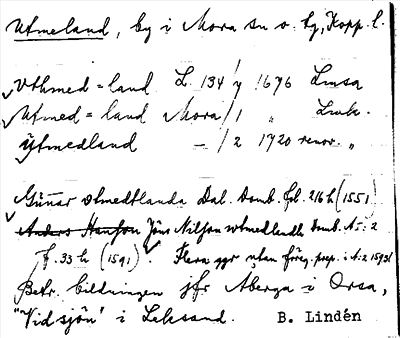 Utmeland, by i Mora sn o. tg, Kopp. l.
Vthmed=land L. 134/y 1696 Lmsa
Utmed=land Mora/1 " Lmk.
Ytmedland — /2 1720 renov. "
Gunnar vtmedtlanda Dal. Domb. fol. 216 h (1551)
Anders Hansson Jöns Nilson wtmedlandh Domb. N:2
f. 33 h (1591). Flera ggr utan föreg. prep. i A:2 1593!
Betr. bildningen jfr Aberga i Orsa,
"Vidsjön" i Leksand. B. Lindén